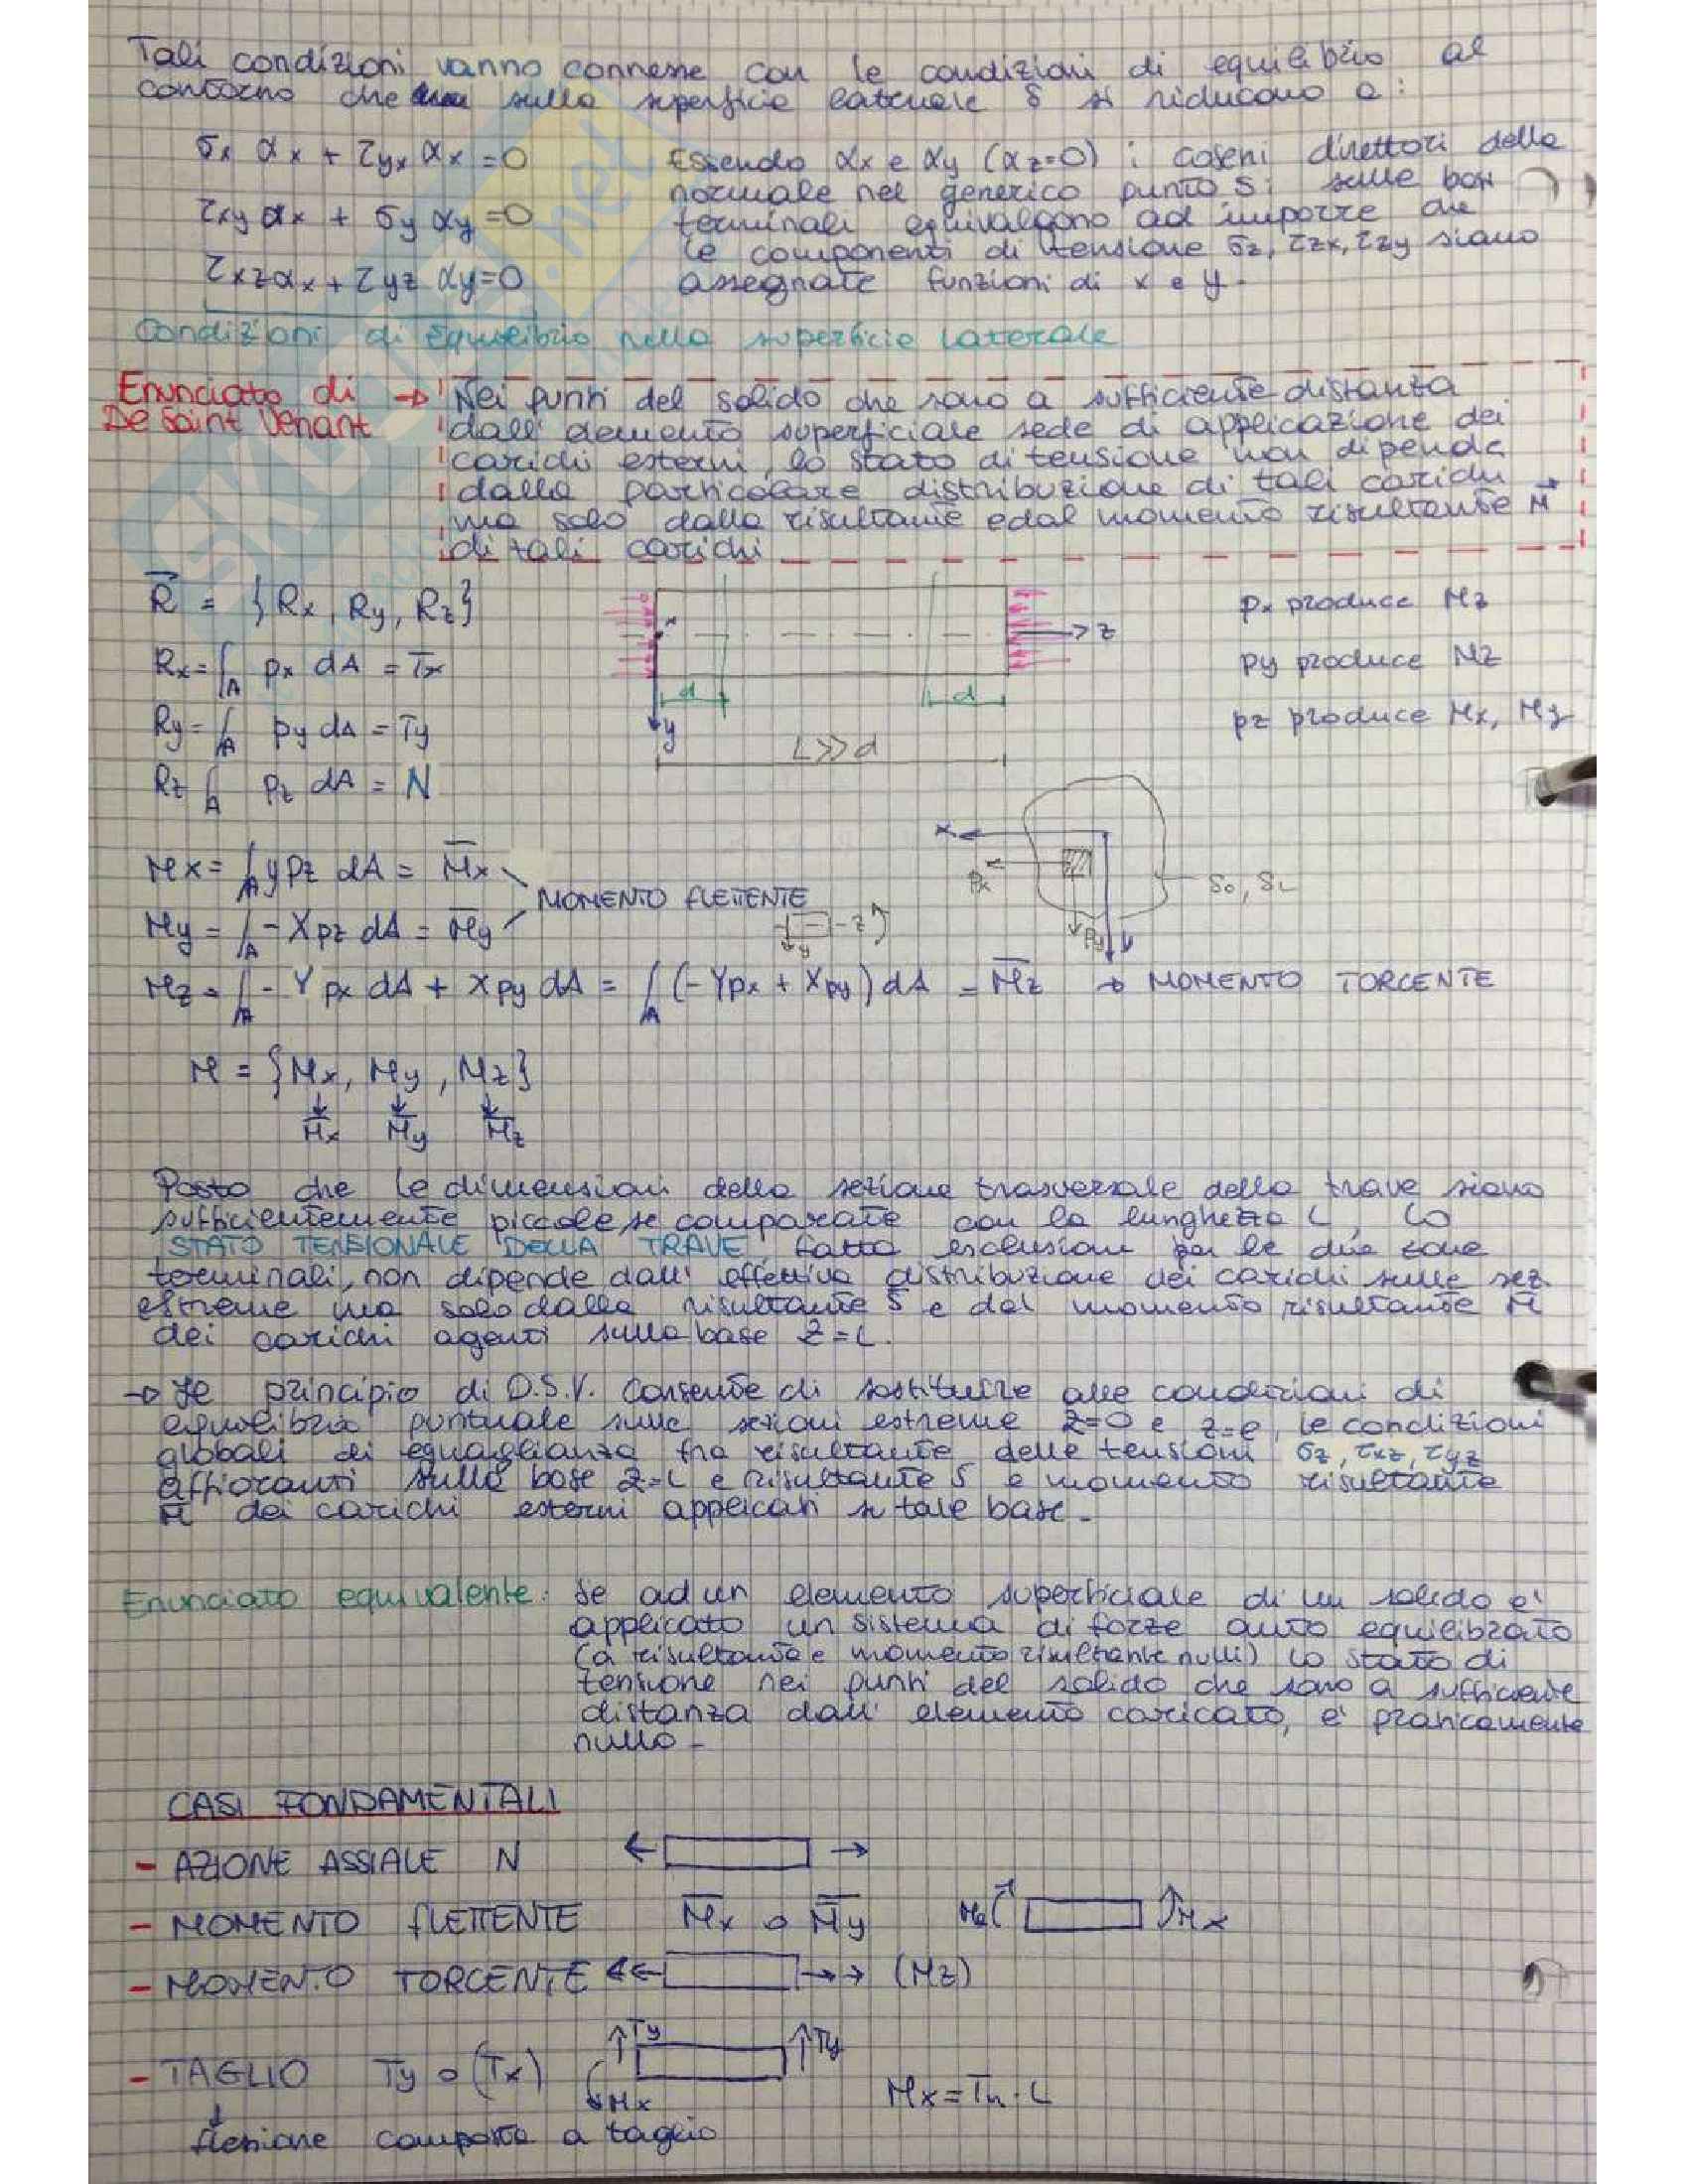 Tali condizioni vanno connesse con le condizioni di equilibrio al
contorno che sulla superficie laterale S si riducono a:
σx αx + τyx αx = 0
τxy αx + σy αy = 0
τxz αx + τyz αy = 0
Essendo αx e αy (αz=0) i coseni direttori della
normale nel generico punto S; sulle basi
terminali equivalgono ad imporre che
le componenti di tensione σz, τzx, τzy siano
assegnate funzioni di x e y.
Condizioni di equilibrio nella superficie laterale
Enunciato di → Nei punti del solido che sono a sufficiente distanza
De Saint Venant dall' elemento superficiale sede di applicazione dei
carichi esterni, lo stato di tensione non dipende
dalla particolare distribuzione di tali carichi
ma solo dalla risultante e dal momento risultante M
di tali carichi
R = {Rx, Ry, Rz}
Rx = ∫A px dA = Tx
Ry = ∫A py dA = Ty
Rz ∫A pz dA = N
x
z
y
d
d
L>>d
px produce Mz
py produce Mz
pz produce Mx, My
Mx = ∫A y pz dA = Mx
My = ∫A - X pz dA = My
MOMENTO FLETTENTE
z
y
x
px
py
y
So, SL
Mz = ∫A - Y px dA + X py dA = ∫A (-Ypx + Xpy) dA = Mz → MOMENTO TORCENTE
M = {Mx, My, Mz}
Mx My Mz
Posto che le dimensioni della sezione trasversale della trave siano
sufficientemente piccole se comparate con la lunghezza L, lo
STATO TENSIONALE DELLA TRAVE, fatta esclusione per le due zone
terminali, non dipende dall' effettiva distribuzione dei carichi sulle sez.
estreme ma solo dalla risultante S e dal momento risultante M
dei carichi agenti sulla base Z=L.
→ Il principio di D.S.V. consente di sostituire alle condizioni di
equilibrio puntuale sulle sezioni estreme z=0 e z=l, le condizioni
globali di eguaglianza fra risultante delle tensioni σz, τxz, τyz
affioranti sulla base z=L e risultante S e momento risultante
M dei carichi esterni applicati su tale base.
Enunciato equivalente: Se ad un elemento superficiale di un solido e'
applicato un sistema di forze auto equilibrato
(a risultante e momento risultante nulli) lo stato di
tensione nei punti del solido che sono a sufficiente
distanza dall' elemento caricato, e' praticamente
nullo.
CASI FONDAMENTALI
- AZIONE ASSIALE N
- MOMENTO FLETTENTE Mx o My
Mx
- MOMENTO TORCENTE (Mz)
- TAGLIO Ty o (Tx)
Ty
Ty
Mx
Mx = Tn · L
flessione composta a taglio